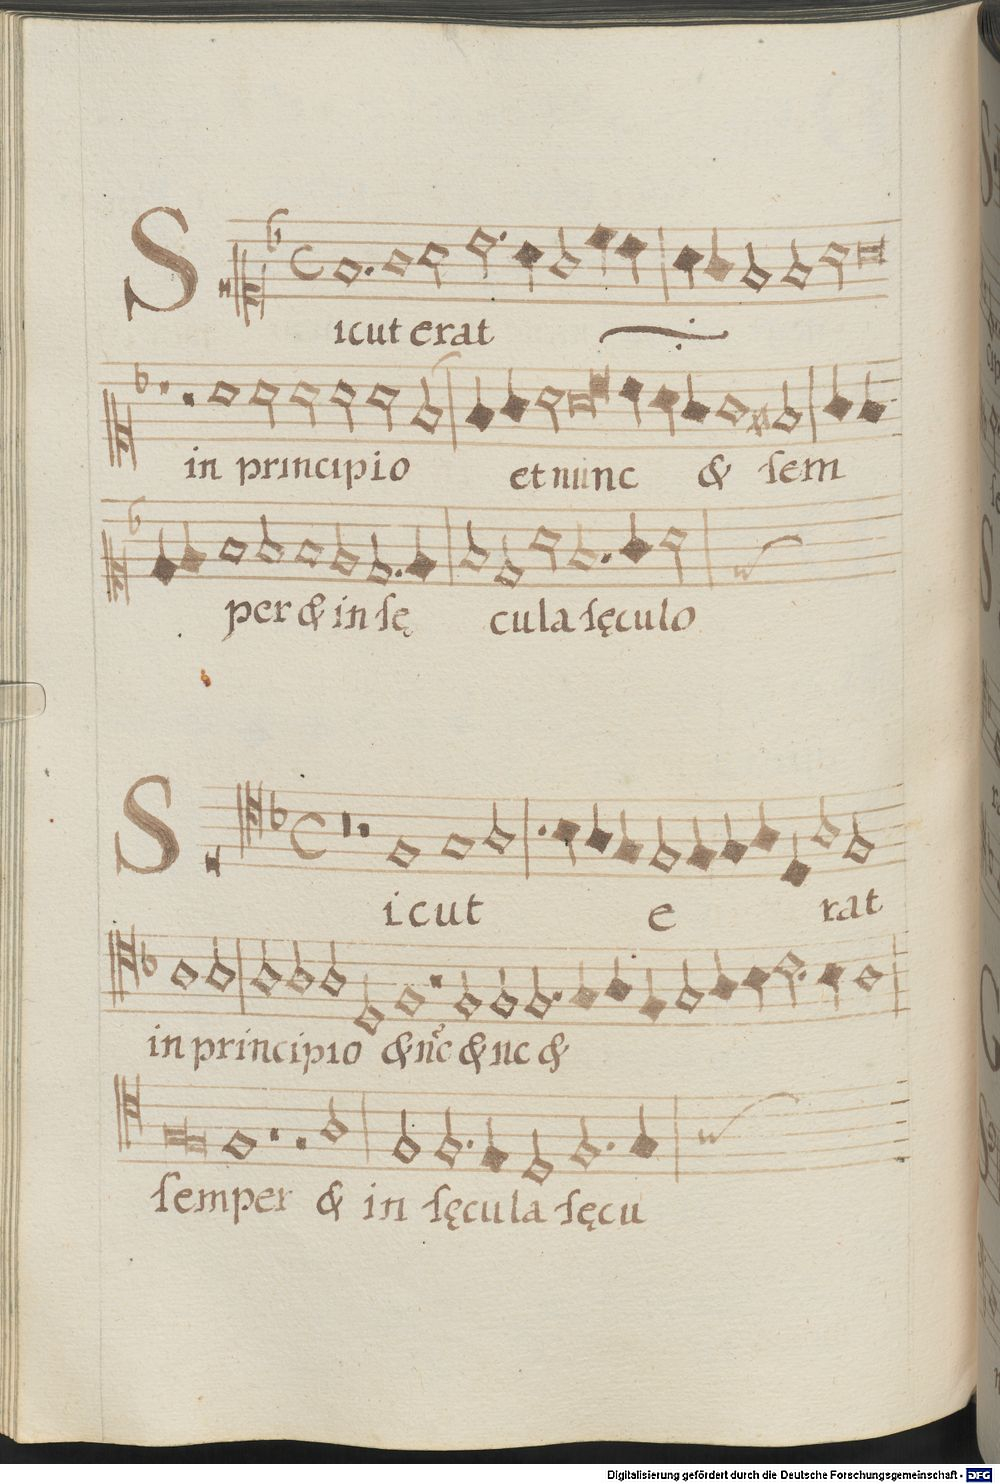 Sicut erat
in principio et nunc & sem
per & in sę cula sęculo
Sicut e rat
in principio & nc & nc &
semper & in sęcula sęcu
Digitalisierung gefördert durch die Deutsche Forschungsgemeinschaft - DFG